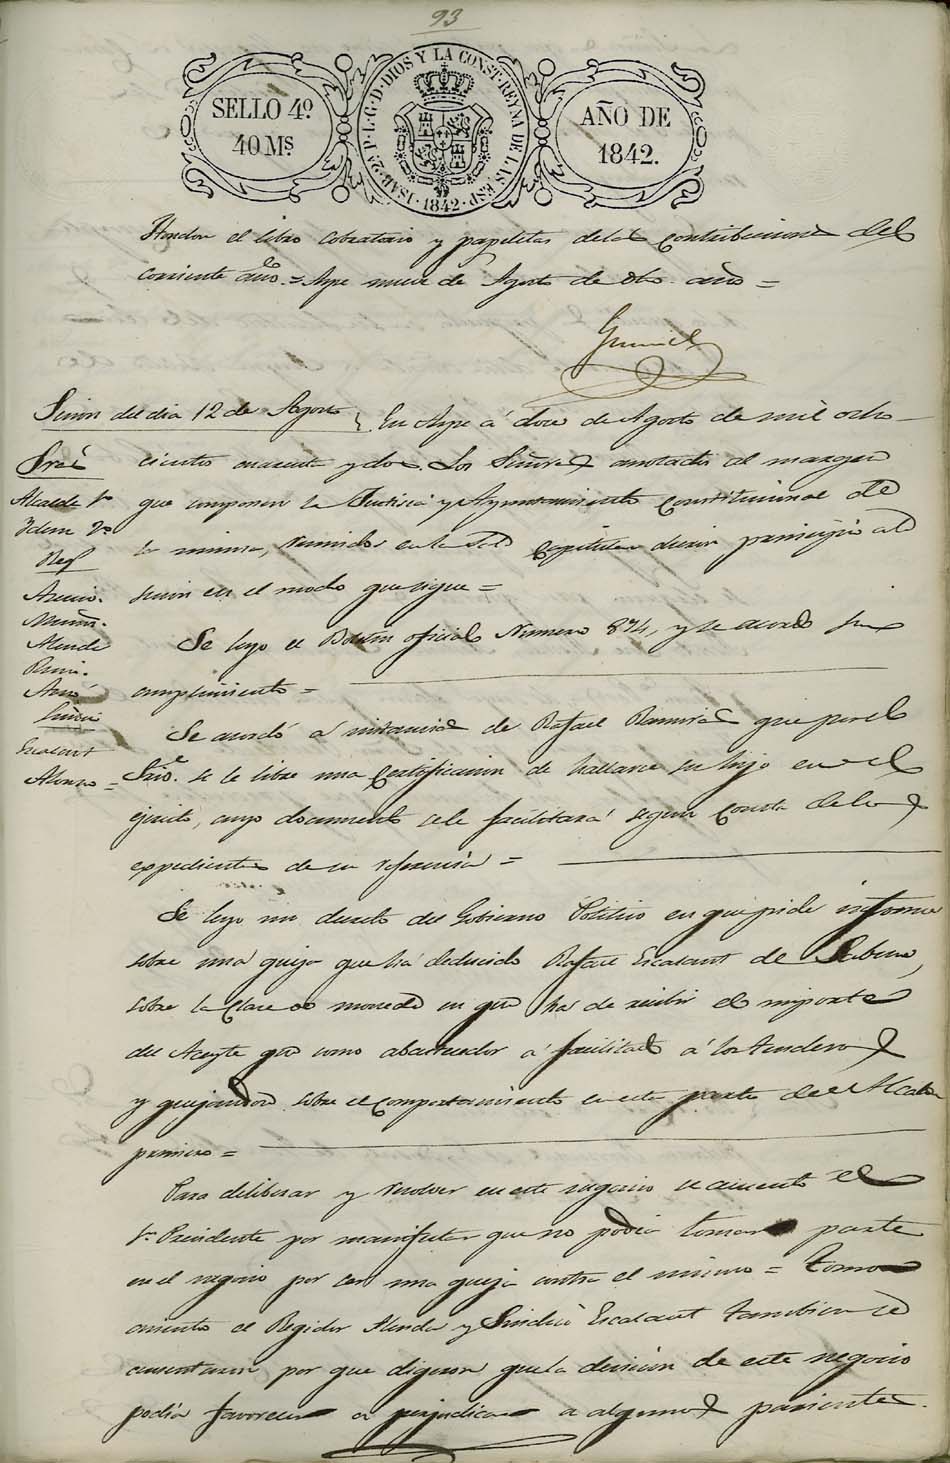 93
SELLO 4º
40 Ms
ISAB. 2ª P. L. G. D. DIOS Y LA CONST. REYNA DE LAS ESP. 1842
AÑO DE
1842.
el libro Cobratorio y papeletas delas Contribuciones del
corriente año = Aspe nueve de Agosto de dho año =
Sesion del dia 12 de Agosto
En Aspe á doce de Agosto de mil ocho
cientos cuarenta y dos. Los Señores anotados al margen
que componen la Justicia y Ayuntamiento Constitucional de
la misma, reunidos en la Sala Capitular dieron principio ala
sesion en el modo que sigue =
Sres
Alcalde 1º
Ydem 2º
Reg
Asencio.
Almodo
Escalant
Alonso =
Se leyo el Boletin oficial Numero 874, y se acordó su
cumplimiento =
Se acordó á instancia de Rafael Ramirez que por el
Srio. se le libre una Certificacion de hallarse su hijo en el
ejercito, cuyo documento sele facilitará segun Conste delos
expedientes de su referencia =
Se leyo un decreto del Gobierno Politico en que pide informe
sobre una queja que há deducido Rafael Escalant de
sobre la Clase de moneda en que há de recibir el importe
del Aceyte que como abastecedor á facilitado á los tenderos
y quejandose sobre el comportamiento en esta parte del Alcalde
primero =
Para deliberar y resolver en este negocio se ausentó el
Sr. Presidente por manifestar que no podia tomar parte
en el negocio por ser una queja contra el mismo = Tomo
asiento el Regidor y Sindico Escalant tambien se
ausentaron por que digeron que la decision de este negocio
podia favorecer o perjudicar a algunos parientes.